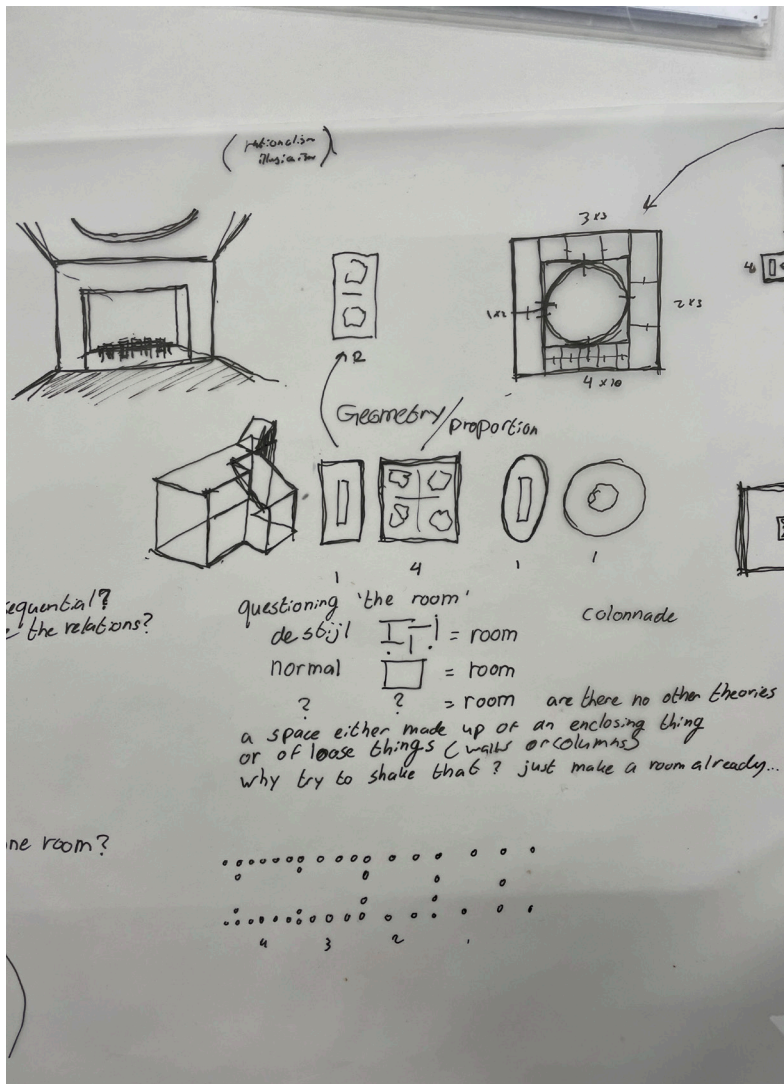 (rationalism
3 x3
1x2
2 x3
4 x10
2
4
Geometry/
proportion
1
4
1
1
equential?
the relations?
questioning 'the room'
de stijl = room
normal = room
? ? = room are there no other theories
colonnade
a space either made up of an enclosing thing
or of loose things (walls or columns)
why try to shake that? just make a room already...
ne room?
4 3 2 1